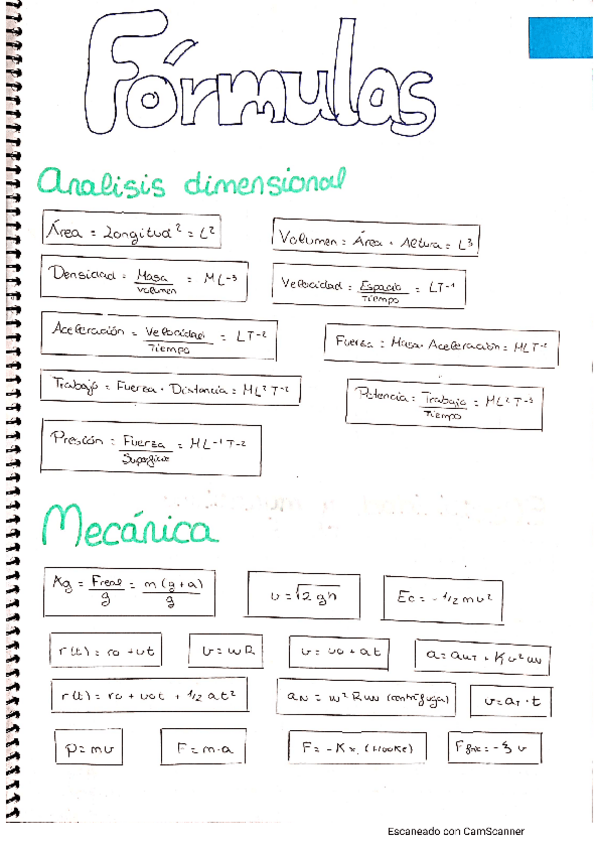 Fórmulas
Analisis dimensional
Área = Longitud² = L²
Volumen = Área · Altura = L³
Densidad = Masa / Volumen = ML⁻³
Velocidad = Espacio / Tiempo = LT⁻¹
Aceleración = Velocidad / Tiempo = LT⁻²
Fuerza = Masa · Aceleración = MLT⁻²
Trabajo = Fuerza · Distancia = ML²T⁻²
Potencia = Trabajo / Tiempo = ML²T⁻³
Presión = Fuerza / Superficie = ML⁻¹T⁻²
Mecánica
Kg = Freal / g = m(g+a) / g
v = √2gh
Ec = -1/2 mv²
r(t) = ro + vt
v = wR
v = vo + at
r(t) = ro + vot + 1/2 at²
aN = w²R uN (centrifuga)
v = aT · t
p = mv
F = m·a
F = -Kx (Hooke)